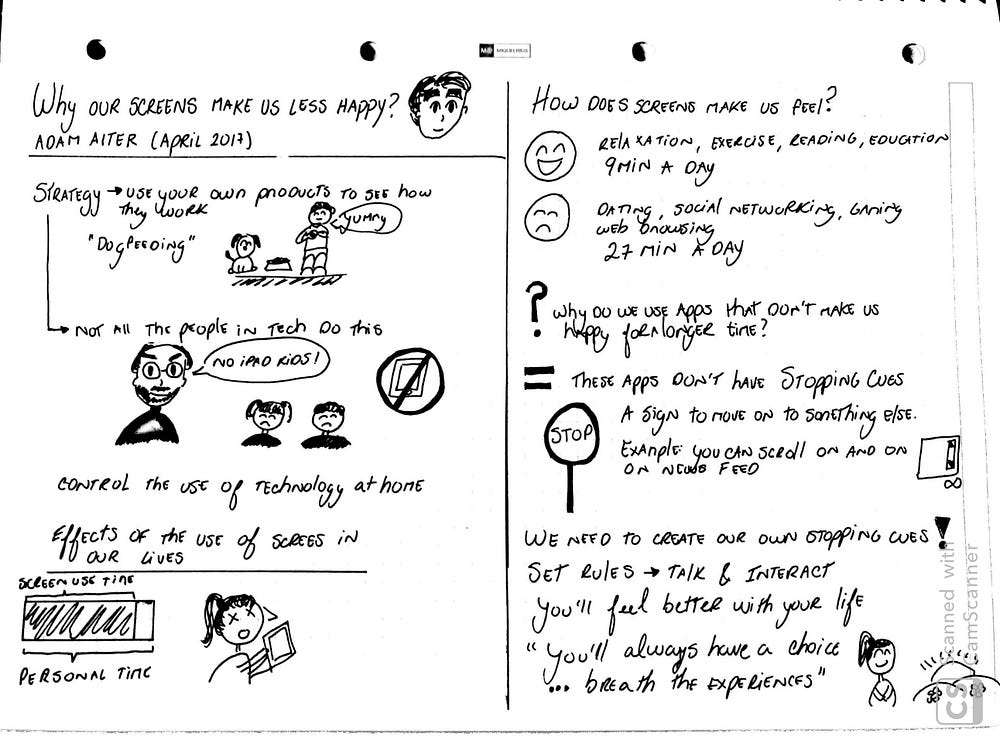 Why OUR SCREENS MAKE US LESS HAPPY?
ADAM AlTER (APRIL 2017)
STRATEGY → USE YOUR OWN products TO SEE how
They WORK
"DogFEEDING"
YUMMY
NOT All The people IN Tech DO This
NO iPAD KIDS!
CONTROL The USE of Technology at home
Effects OF THE USE of SCREES IN
OUR LIVES
SCREEN USE TIME
PERSONAL TIME
HOW DOES SCREENS MAKE US FEEL?
RElAXATION, EXERCISE, READING, EDUCATION
9MIN A DAY
DATING, SOCIAL NETWORKING, GAMING
web browsing
27 MIN A DAY
? Why DO WE USE APPS that DON'T MAKE US
happy for longer time?
= THESE APPS DON'T HAVE STOPPING CUES
STOP
A SIGN TO MOVE ON TO SOMETHING ELSE.
EXAMPLE: YOU CAN SCROLL ON AND ON
ON NEWS FEED
∞
WE NEED TO CREATE OUR OWN STOPPING CUES!
SET RULES → TALK & INTERACT
You'll feel better with your life
"You'll always have a choice
... breath THE EXPERIENCES"
CS Scanned with
CamScanner